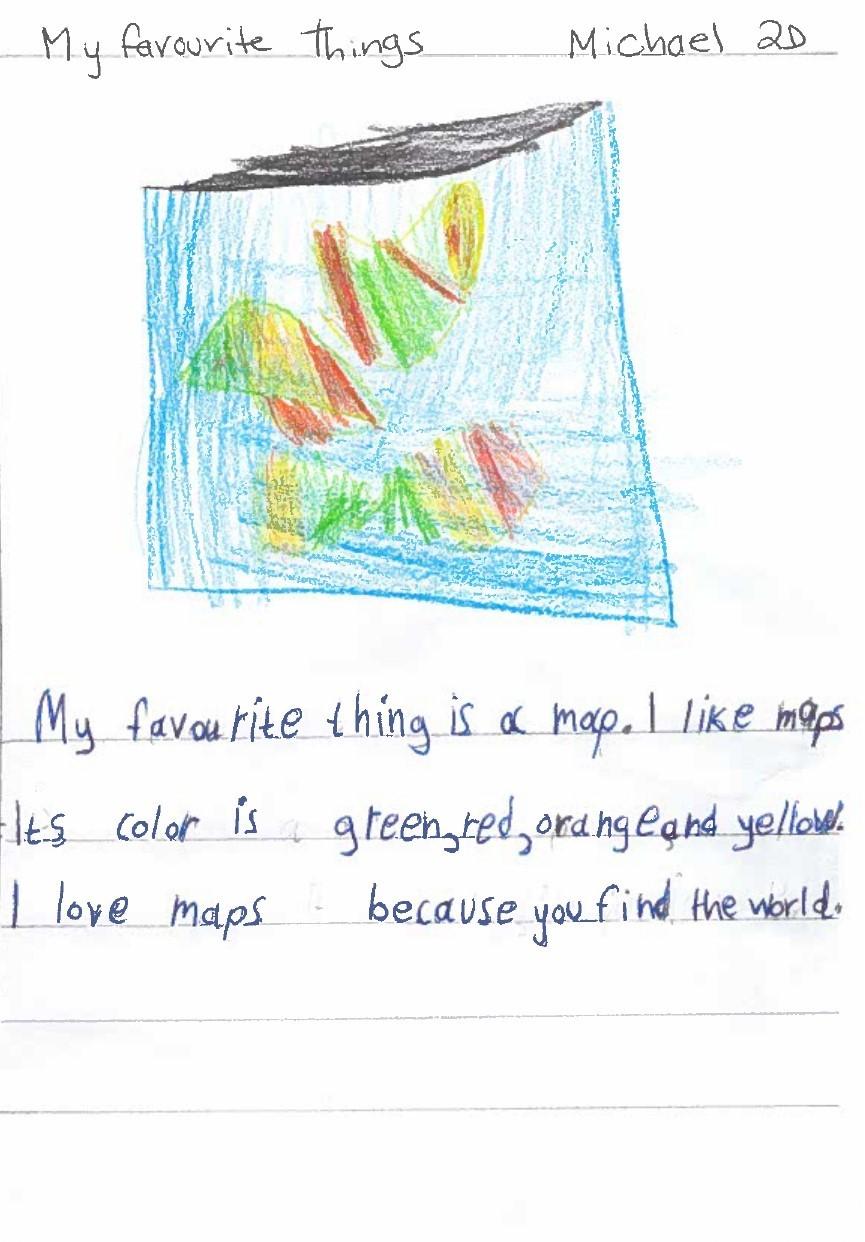 My favourite things Michael 2D
My favourite thing is a map. I like maps
Its color is green, red, orange and yellow.
I love maps because you find the world.